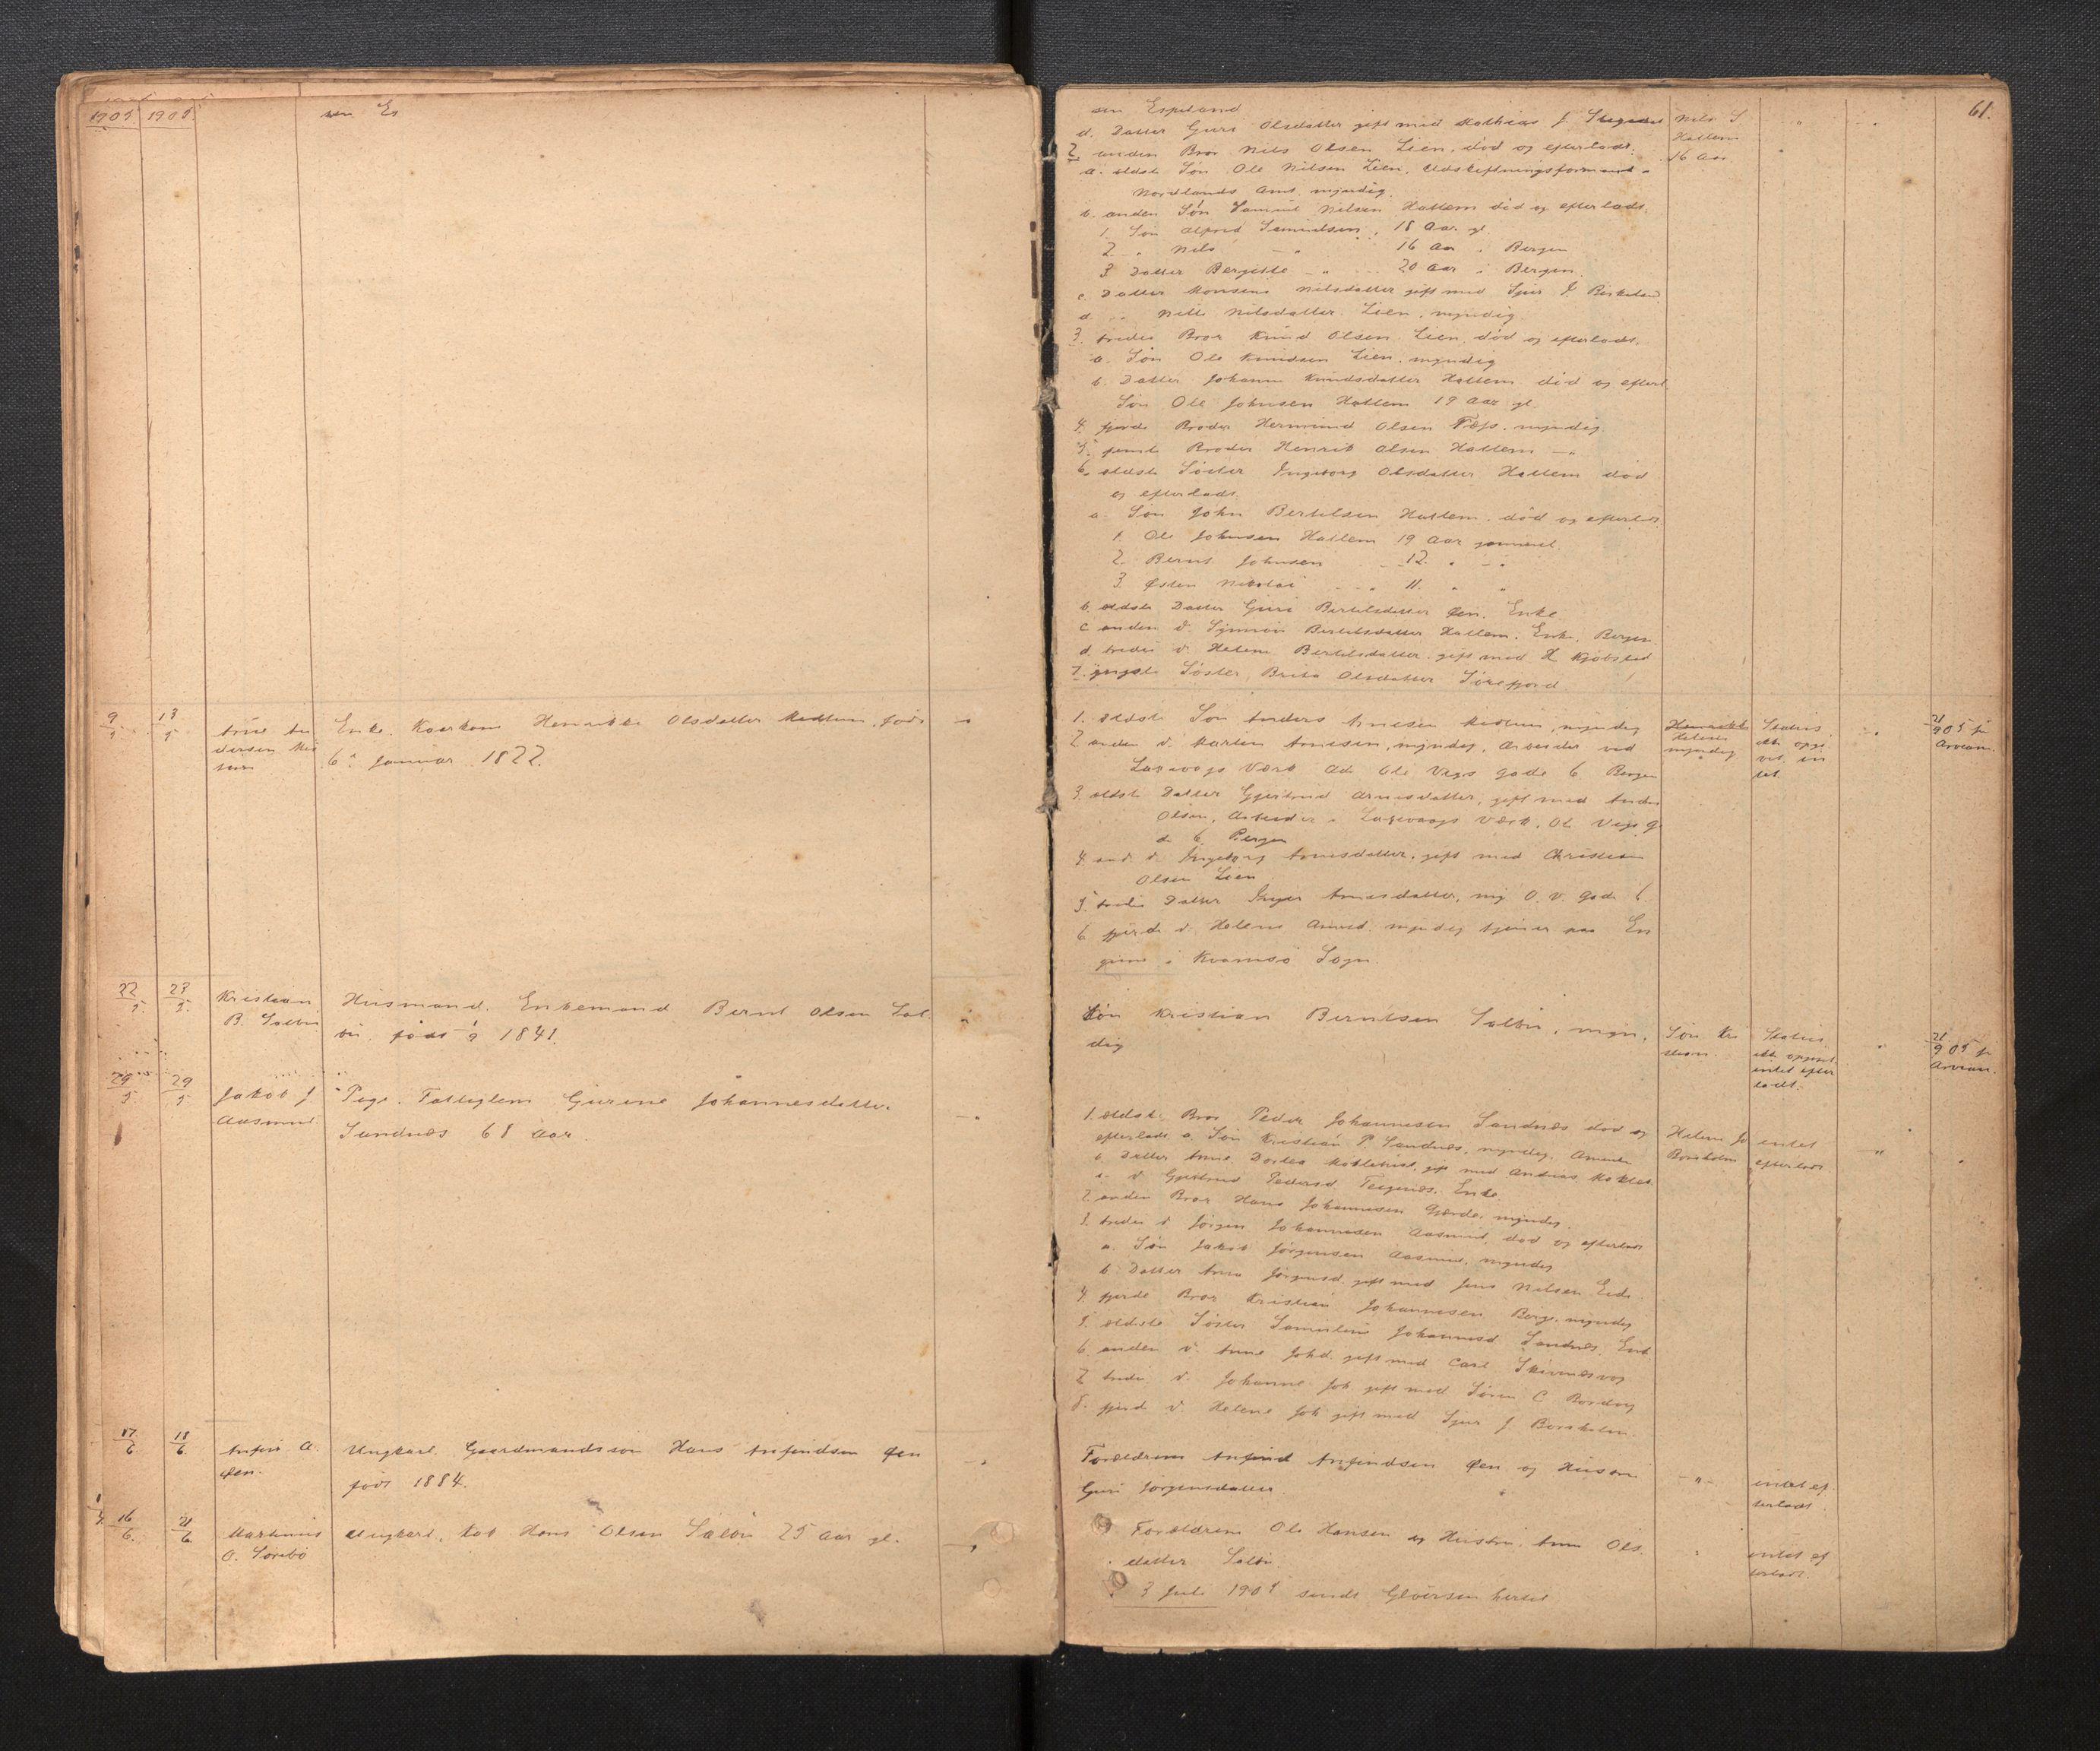 1905 1905
61.
sen Espeland
d. Datter Guri Olsdatter gift med Mathias J.
Nils S
Hatlem
16 Aar
2 anden Bror Nils Olsen Lien, død og efterladt.
a. ældste Søn Ole Nilsen Lien, Udskiftningsformand
Nordlands Amt, myndig
b. anden Søn Samuel Nilsen Hatlem død og efterladt.
1. Søn Alfred Samuelsen, 18 Aar gl.
2 - " Nils - " 16 Aar i Bergen
3 Datter Bergitte - " 20 Aar i Bergen
c. Datter Monsine Nilsdatter gift med Sjur J. Birkeland
d. " Nille Nilsdatter Lien, myndig.
3. tredie Bror Knud Olsen Lien, død og efterladt.
a. Søn Ole Knudsen Lien, myndig
b. Datter Johanne Knudsdatter Hatlem død og efterl
Søn Ole Johnsen Hatlem 19 Aar gl.
4. fjerde Broder Hermund Olsen myndig
5. femte Broder Henrik Olsen Hatlem - "
6. ældste Søster Ingeborg Olsdatter Hatlem død
og efterladt.
a. Søn John Bertelsen Hatlem, død og efterlod
1. Ole Johnsen Hatlem 19 Aar gammel.
2. Bernt Johnsen 12. " - "
3. Østen Nikolai - " 11. " "
b. ældste Datter Guri Bertelsdatter Øen, Enke
c anden d. Synneve Bertelsdatter Hatlem, Enke, Bergen
d. tredie d. Helene Bertelsdatter gift med H
7. yngste Søster, Brita Olsdatter Sørefjord
9/5 13/5 Arne An
dersen
Enke, Kaarkone Henrikke Olsdatter født
6te Januar 1822.
1. ældste Søn Anders Arnesen myndig
2 anden d. Martin Arnesen, myndig, Arbeider ved
Laxevaags Værk Adr Ole Vigs Gade 6 Bergen
3. ældste Datter Gjertrud Arnesdatter, gift med Anders
Olsen, Arbeider i Laxevaags Værk, Ol Vigs G
de 6 Bergen
4. and. d. Ingeborg Arnesdatter, gift med Christian
Olsen Lien
5. tredie Datter Inger Arnesdatter, my O. V. Gade 6
6 fjerde d. Helene Arnesd. myndig tjener paa En
gene i Kvamsø Sogn.
Helene
myndig
Status
ikke opgi
vet, in
tet.
21/9 05 fr
Arvean.
22/5 23/5 Kristian
B. Salbu
Husmand, Enkemand Bernt Olsen Sal
bu født i 1841.
Søn Kristian Berntsen Salbu, myn,
dig
Søn Kri
stian.
Status
ikke opgivet
intet efter
ladt.
21/9 05 fr
Arvean.
29/5 29/5 Jakob J
Aasmul
Pige, Fattiglem Gurine Johannesdatter
Sandnæs 61 Aar.
1. ældste Bror Peder Johannesen Sandnæs død og
efterladt a. Søn Kristian P. Sandnæs, myndig, Amerika
b. Datter Anne Dortea gift med Andreas
c. d. Gjertrud Pedersd. Enke.
2 anden Bror Hans Johannesen Gjerde, myndig.
3. tredie d Jørgen Johannesen Aasmul, død og efterladt
a. Søn Jakob Jørgensen Aasmul, myndig
b. Datter Anna Jørgensd. gift med Jens Nilsen Eide
4 fjerde Bror Kristian Johannesen Berge, myndig
5. ældste Søster Samueline Johannesd Sandnæs, Enk
6 anden d. Anne Johd. gift med Carl
7 tredie d. Johanne Joh gift med Søren C
8. fjerde d. Helene Joh gift med Sjur J. Borsholm.
Helene Jo
Borsholm
intet
efterladt
17/6 18/6 Anfin A.
Øen.
Ungkarl, Gaardmandssøn Hans Anfindsen Øen
født 1884.
Forældrene Anfind Anfindsen Øen og Hustru
Guri Jørgensdatter.
intet ef
terladt
16/6 21/6 Martinus
O. Sørebø
Ungkarl, Hans Olsen Salbu 25 Aar gl.
Forældrene Ole Hansen og Hustru Anna Ols
datter Salbu.
intet ef
terladt.
3 Juli 1905 sendt hertil